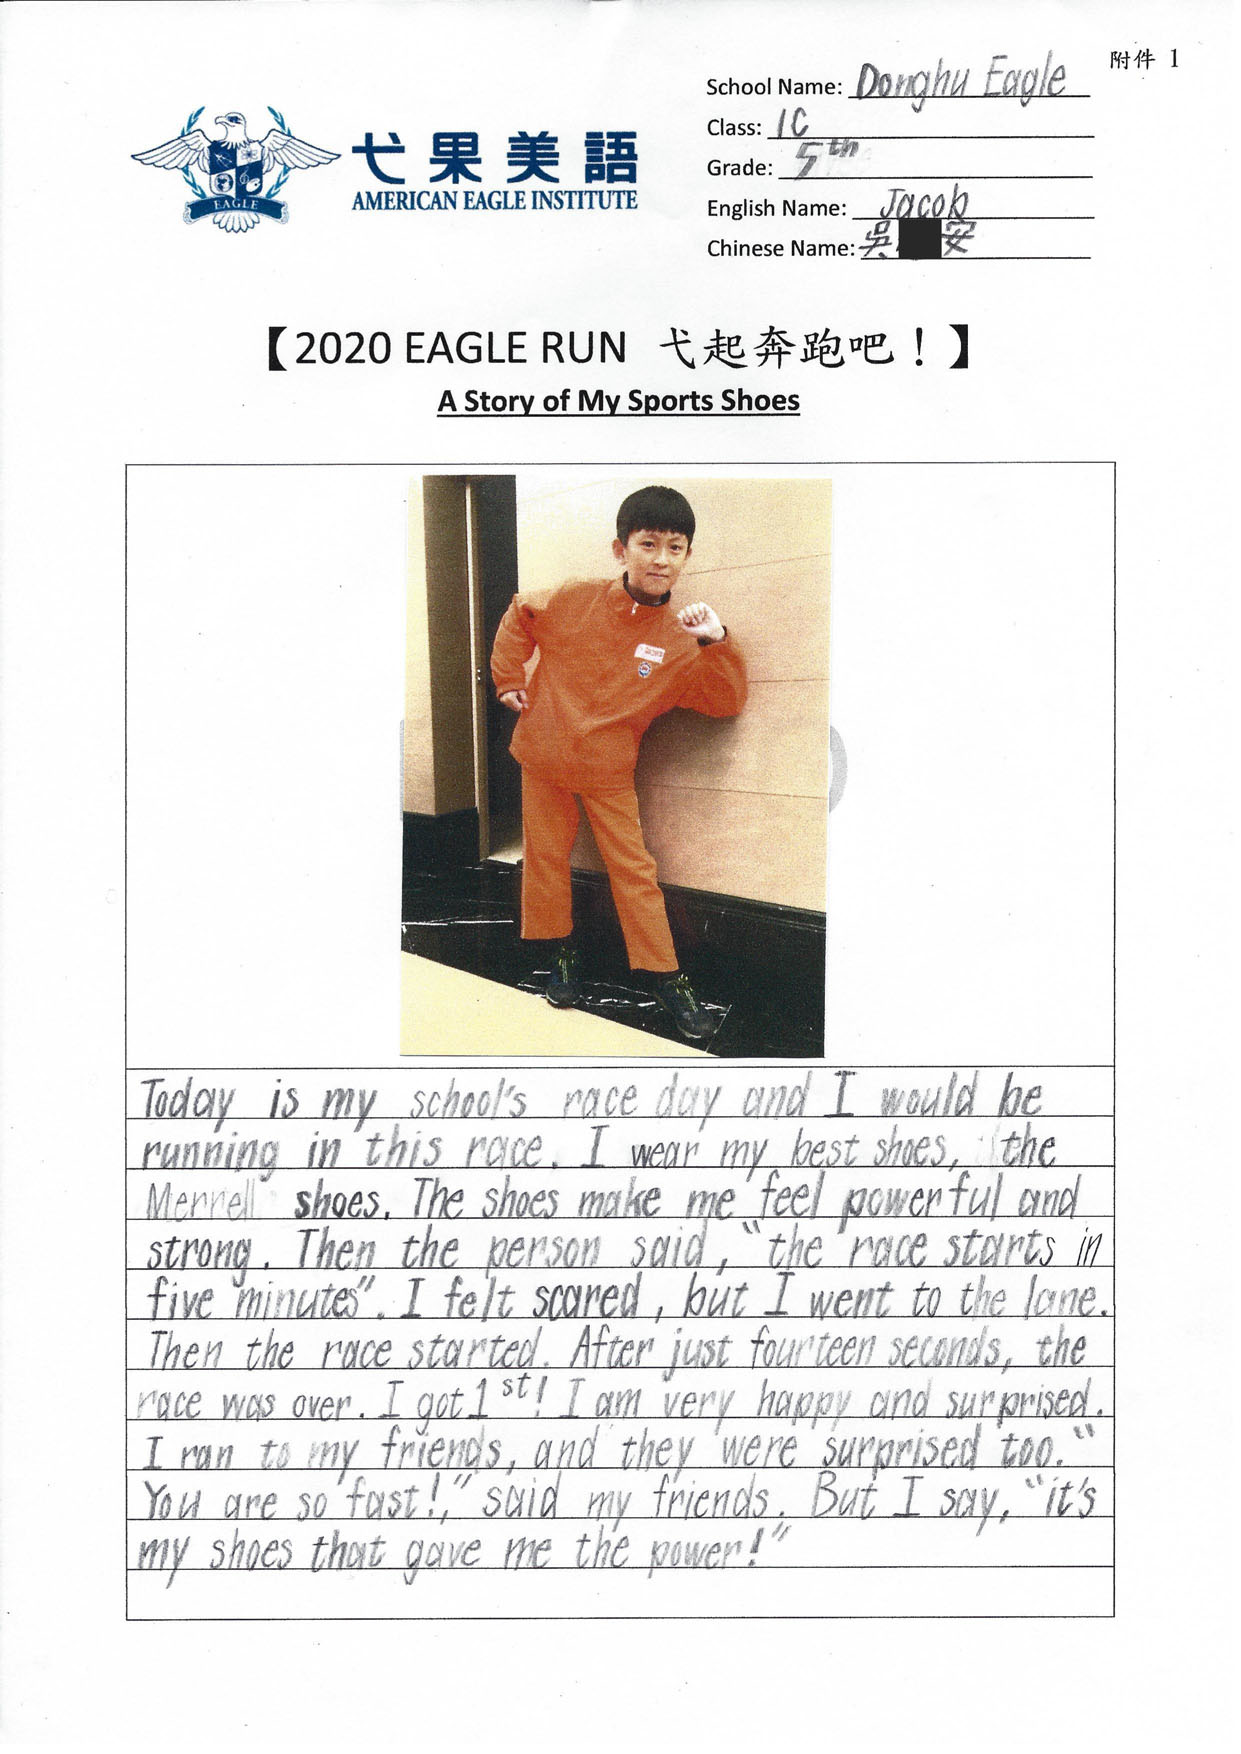 附件 1
School Name: Donghu Eagle
Class: 1C
Grade: 5th
English Name: Jacob
Chinese Name: 吳 安
EAGLE
弋果美語
AMERICAN EAGLE INSTITUTE
【2020 EAGLE RUN 弋起奔跑吧！】
A Story of My Sports Shoes
Today is my school's race day and I would be
running in this race. I wear my best shoes, the
Merrell shoes. The shoes make me feel powerful and
strong. Then the person said, "the race starts in
five minutes". I felt scared, but I went to the lane.
Then the race started. After just fourteen seconds, the
race was over. I got 1st! I am very happy and surprised.
I ran to my friends, and they were surprised too. "
You are so fast!," said my friends. But I say, "it's
my shoes that gave me the power!"